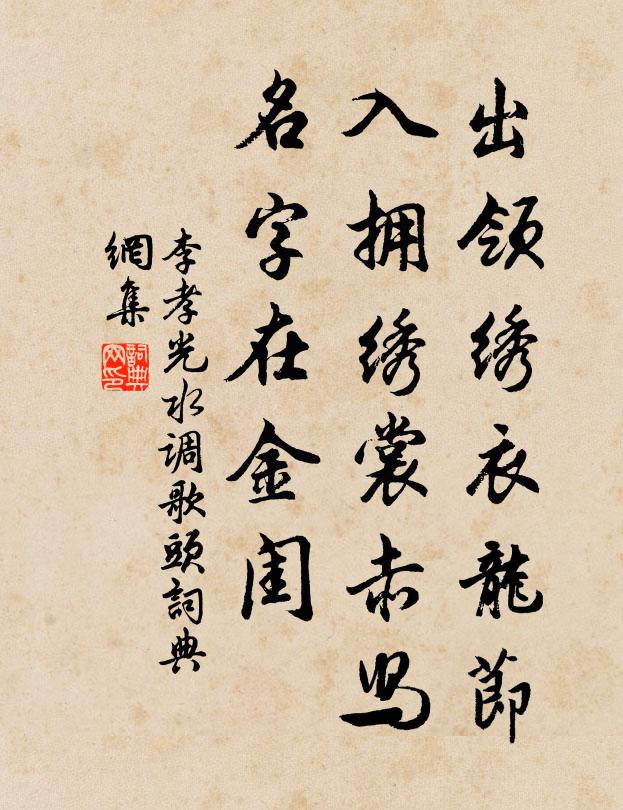 出领绣衣龍節
入拥绣裳赤舄
名字在金闺
李孝光水调歌頭詞典
網集
詞典
网印